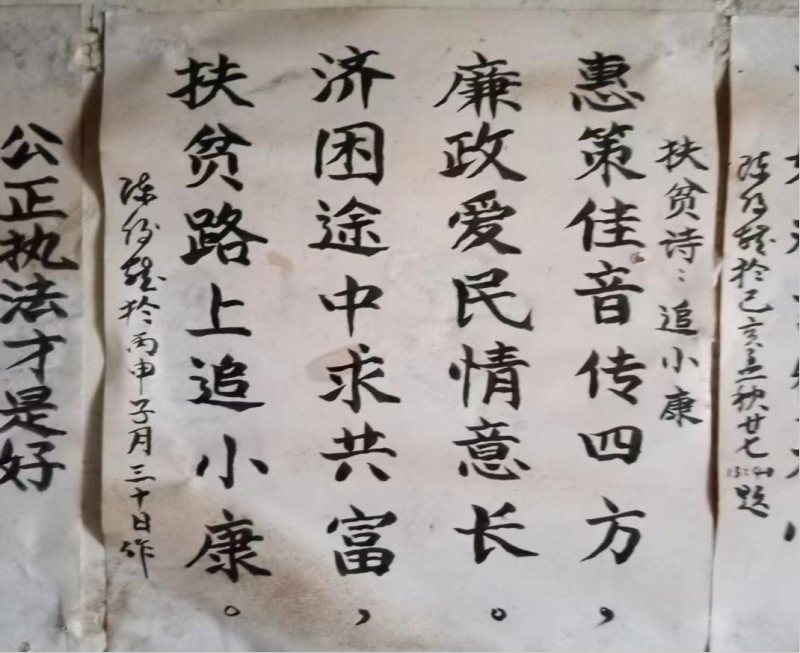 陈
于己亥孟秋廿七
13:40
题
扶贫诗：追小康
惠策佳音传四方，
廉政爱民情意长。
济困途中求共富，
扶贫路上追小康。
陈
于丙申子月三十日作
公正执法才是好